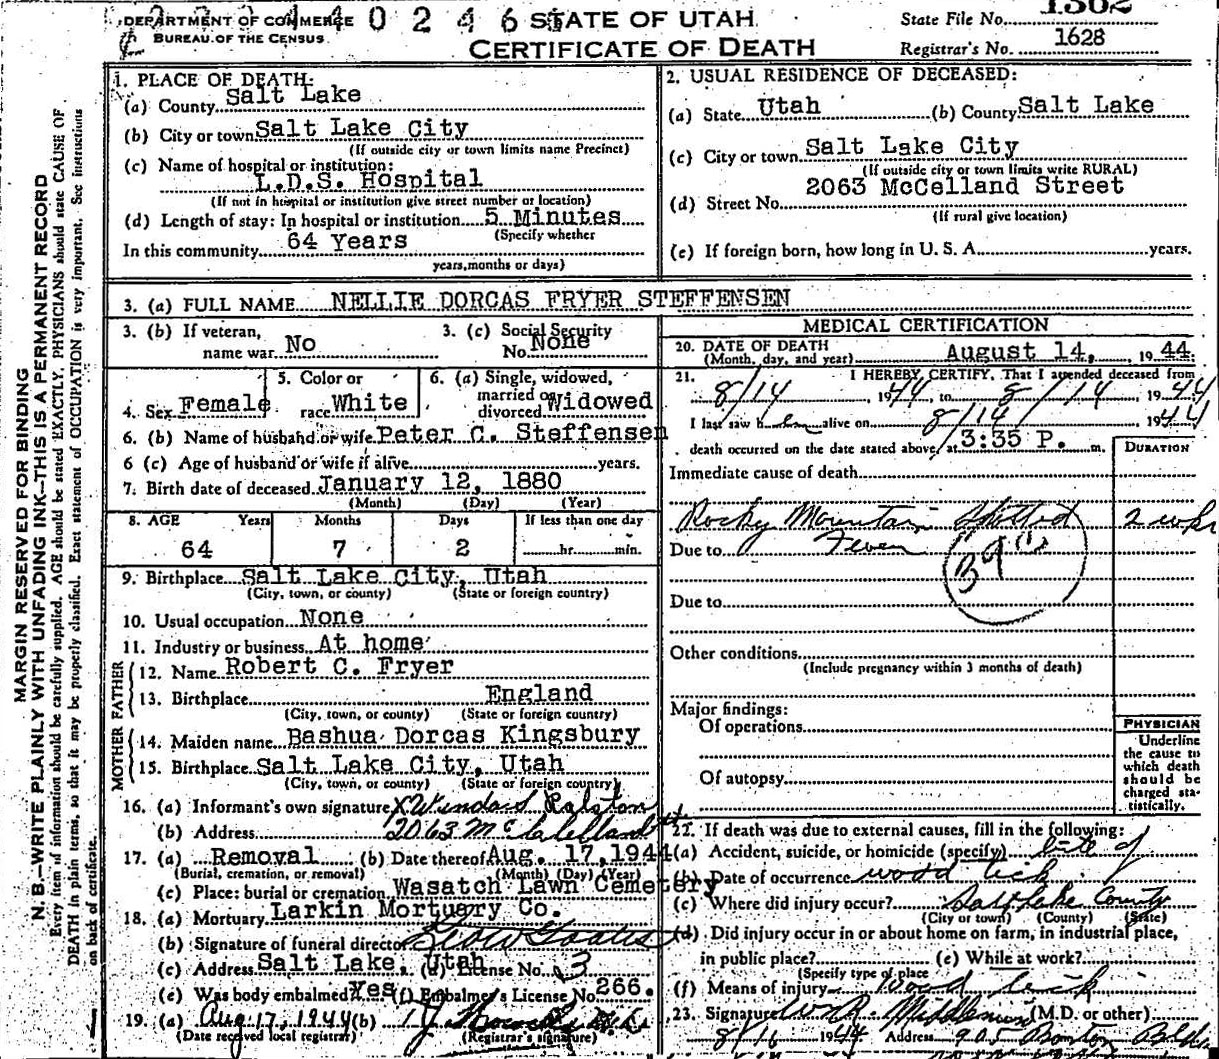 DEPARTMENT OF COMMERCE
BUREAU OF THE CENSUS
4 0 2 4 6
STATE OF UTAH
CERTIFICATE OF DEATH
State File No. 1362
Registrar's No. 1628
MARGIN RESERVED FOR BINDING
N. B.—WRITE PLAINLY WITH UNFADING INK—THIS IS A PERMANENT RECORD
Every item of information should be carefully supplied. AGE should be stated EXACTLY. PHYSICIANS should state CAUSE OF
DEATH in plain terms, so that it may be properly classified. Exact statement of OCCUPATION is very important. See instructions
on back of certificate.
1. PLACE OF DEATH:
(a) County Salt Lake
(b) City or town Salt Lake City
(If outside city or town limits name Precinct)
(c) Name of hospital or institution:
L.D.S. Hospital
(If not in hospital or institution give street number or location)
(d) Length of stay: In hospital or institution 5 Minutes
(Specify whether
In this community 64 Years
years, months or days)
2. USUAL RESIDENCE OF DECEASED:
(a) State Utah (b) County Salt Lake
(c) City or town Salt Lake City
(If outside city or town limits write RURAL)
2063 McCelland Street
(d) Street No.
(If rural give location)
(e) If foreign born, how long in U. S. A. years.
3. (a) FULL NAME NELLIE DORCAS FRYER STEFFENSEN
3. (b) If veteran, name war No
3. (c) Social Security No. None
4. Sex Female
5. Color or race White
6. (a) Single, widowed, married or divorced Widowed
6. (b) Name of husband or wife Peter C. Steffensen
6 (c) Age of husband or wife if alive years.
7. Birth date of deceased January 12, 1880
(Month) (Day) (Year)
8. AGE Years Months Days If less than one day
64 7 2 hr. min.
9. Birthplace Salt Lake City, Utah
(City, town, or county) (State or foreign country)
10. Usual occupation None
11. Industry or business At home
FATHER
12. Name Robert C. Fryer
13. Birthplace England
(City, town, or county) (State or foreign country)
MOTHER
14. Maiden name Bashua Dorcas Kingsbury
15. Birthplace Salt Lake City, Utah
(City, town, or county) (State or foreign country)
16. (a) Informant's own signature X Ralston
(b) Address 2063 McClelland St
17. (a) Removal (b) Date thereof Aug. 17, 1944
(Burial, cremation, or removal) (Month) (Day) (Year)
(c) Place: burial or cremation Wasatch Lawn Cemetery
18. (a) Mortuary Larkin Mortuary Co.
(b) Signature of funeral director
(c) Address Salt Lake, Utah (d) License No. 3
(e) Was body embalmed Yes (f) Embalmer's License No. 266.
19. (a) Aug 17, 1944 (b)
(Date received local registrar) (Registrar's signature)
MEDICAL CERTIFICATION
20. DATE OF DEATH
(Month, day, and year) August 14, 1944.
21. I HEREBY CERTIFY, That I attended deceased from
8/14, 1944, to 8/14 1944
I last saw h er alive on 8/14 1944
death occurred on the date stated above, at 3:35 P. m.
DURATION
Immediate cause of death
Rocky Mountain Spotted 2 wks
Due to Fever
39(1)
Due to
Other conditions
(Include pregnancy within 3 months of death)
Major findings:
Of operations
Of autopsy
PHYSICIAN
Underline
the cause to
which death
should be
charged sta-
tistically.
22. If death was due to external causes, fill in the following:
(a) Accident, suicide, or homicide (specify) bite of
(b) Date of occurrence wood tick
(c) Where did injury occur? Salt Lake County
(City or town) (County) (State)
(d) Did injury occur in or about home on farm, in industrial place,
in public place? (e) While at work?
(Specify type of place
(f) Means of injury Wood tick
23. Signature W R. Middleton (M.D. or other)
8/16 1944 Address 905 Boston Bldg